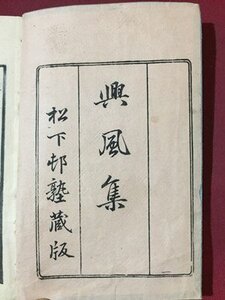 興風集
松下邨塾蔵版